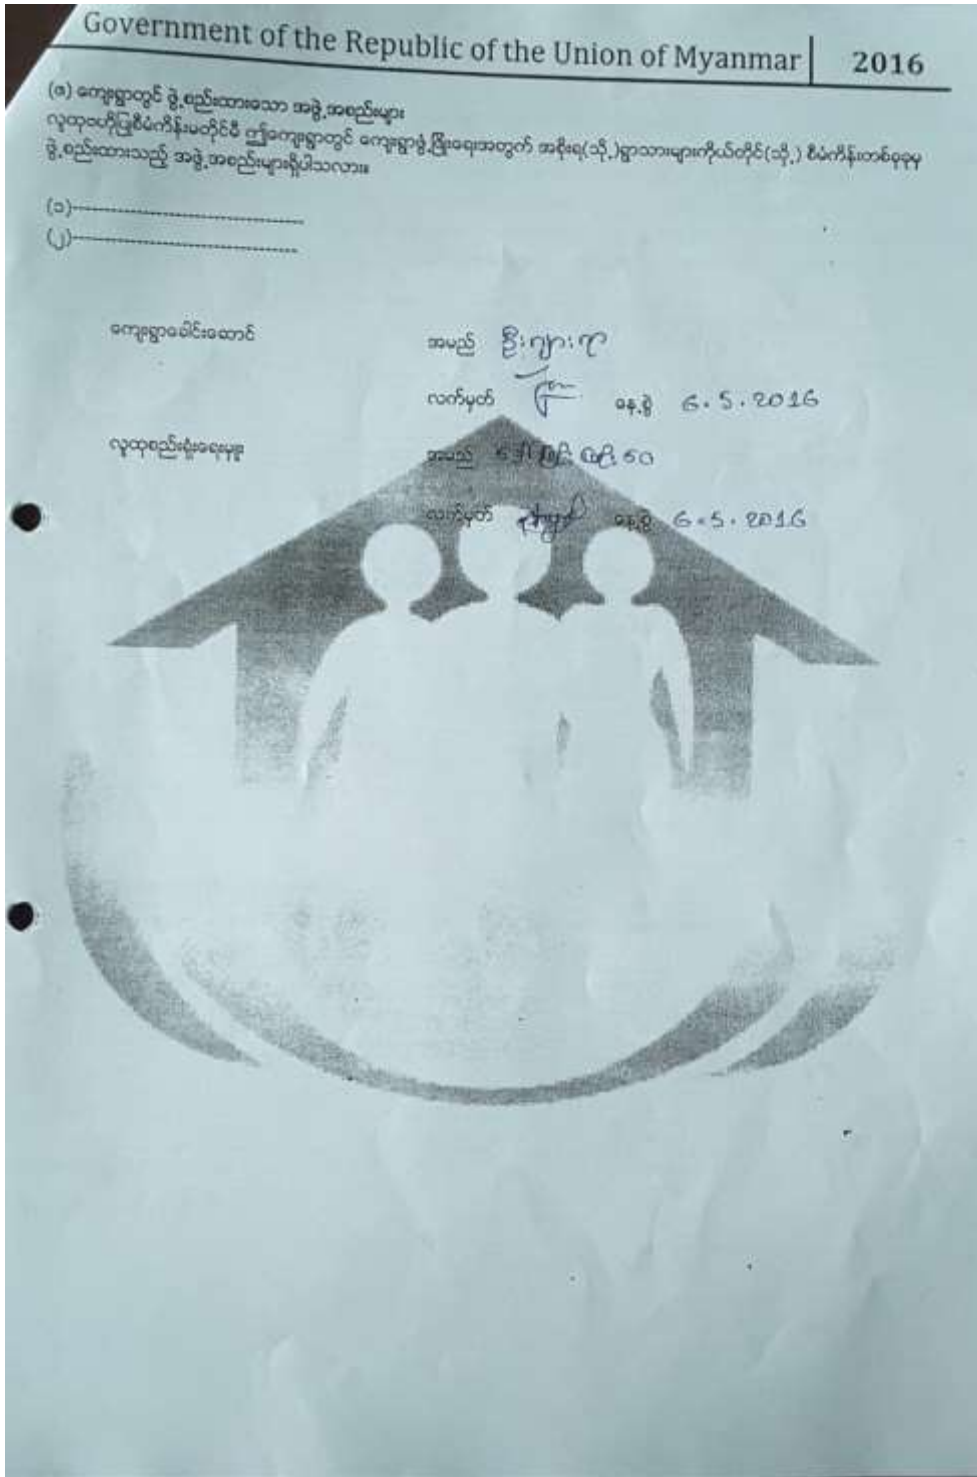 Government of the Republic of the Union of Myanmar 2016
(ဇ) ကျေးရွာတွင် ဖွဲ့စည်းထားသော အဖွဲ့အစည်းများ
လူထုဗဟိုပြုစီမံကိန်းမတိုင်မီ ဤကျေးရွာတွင် ကျေးရွာဖွံ့ဖြိုးရေးအတွက် အစိုးရ(သို့)ရွာသားများကိုယ်တိုင်(သို့) စီမံကိန်းတစ်ခုခုမှ
ဖွဲ့စည်းထားသည့် အဖွဲ့အစည်းများရှိပါသလား။
(၁)--------------------------------
(၂)--------------------------------
ကျေးရွာခေါင်းဆောင် အမည် ဦး
လက်မှတ် နေ့စွဲ 6.5.2016
လူထုစည်းရုံးရေးမှူး အမည် ဒေါ်
လက်မှတ် နေ့စွဲ 6.5.2016